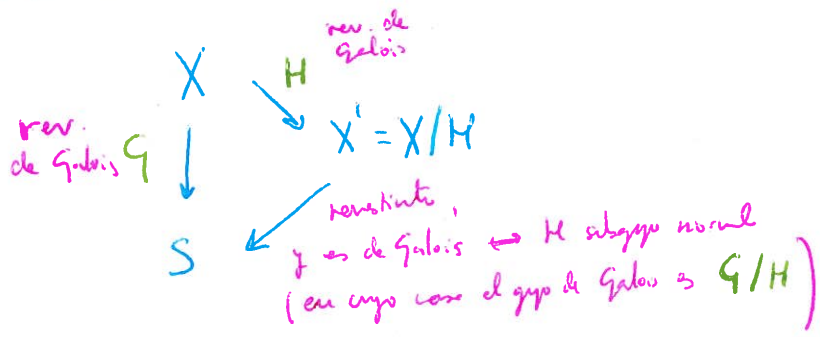 rev. de
Galois
X
H
rev.
de Galois G
X' = X/H
revestimiento,
S
y es de Galois ↔ H subgrupo normal
(en cuyo caso el grupo de Galois es G/H)